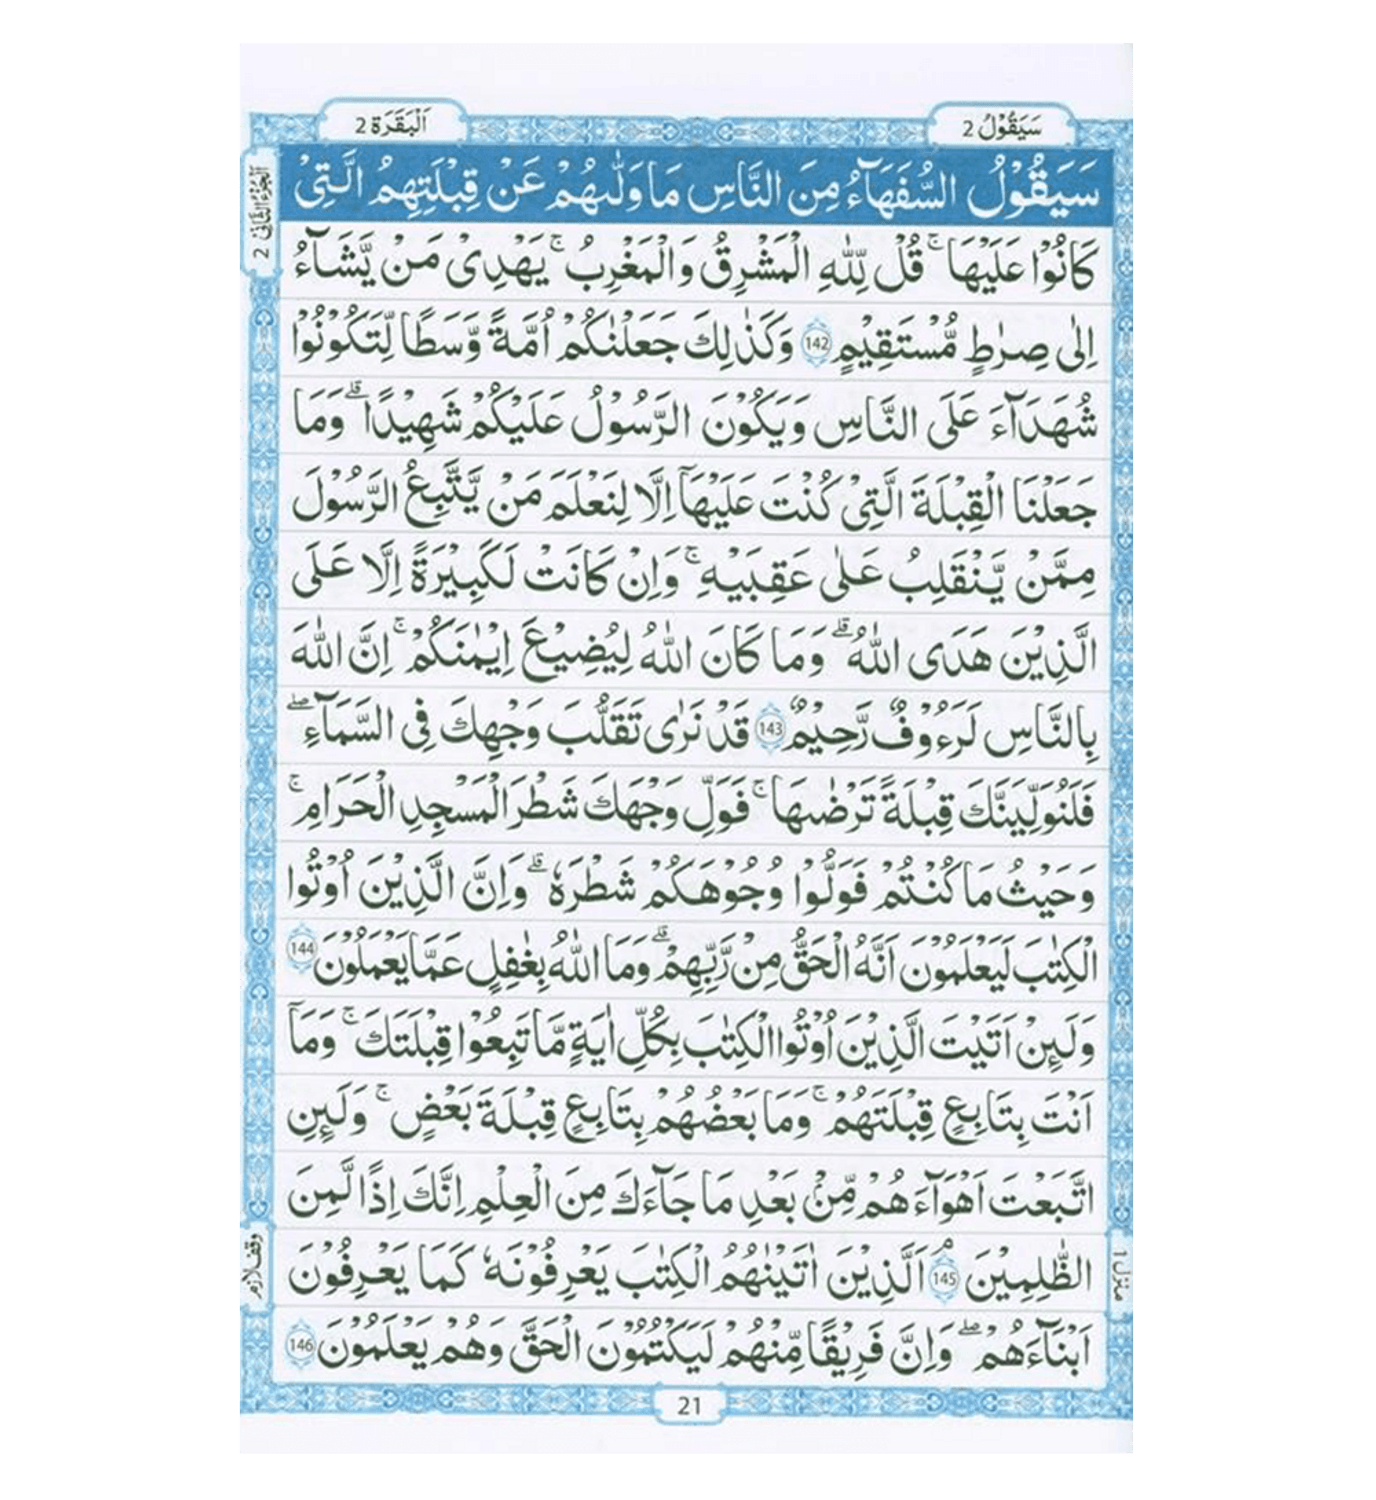 سَيَقُوْلُ 2
اَلْبَقَرَة 2
اَلْجُزْءُ الثَّانِيْ 2
سَيَقُوْلُ السُّفَهَآءُ مِنَ النَّاسِ مَا وَلّٰىهُمْ عَنْ قِبْلَتِهِمُ الَّتِيْ
كَانُوْا عَلَيْهَا ۚ قُلْ لِّلّٰهِ الْمَشْرِقُ وَالْمَغْرِبُ ۚ يَهْدِيْ مَنْ يَّشَآءُ
اِلٰى صِرٰطٍ مُّسْتَقِيْمٍ 142 وَكَذٰلِكَ جَعَلْنٰكُمْ اُمَّةً وَّسَطًا لِّتَكُوْنُوْا
شُهَدَآءَ عَلَى النَّاسِ وَيَكُوْنَ الرَّسُوْلُ عَلَيْكُمْ شَهِيْدًا ۗ وَمَا
جَعَلْنَا الْقِبْلَةَ الَّتِيْ كُنْتَ عَلَيْهَآ اِلَّا لِنَعْلَمَ مَنْ يَّتَّبِعُ الرَّسُوْلَ
مِمَّنْ يَّنْقَلِبُ عَلٰى عَقِبَيْهِ ۚ وَاِنْ كَانَتْ لَكَبِيْرَةً اِلَّا عَلَى
الَّذِيْنَ هَدَى اللّٰهُ ۗ وَمَا كَانَ اللّٰهُ لِيُضِيْعَ اِيْمٰنَكُمْ ۚ اِنَّ اللّٰهَ
بِالنَّاسِ لَرَءُوْفٌ رَّحِيْمٌ 143 قَدْ نَرٰى تَقَلُّبَ وَجْهِكَ فِي السَّمَآءِ ۖ
فَلَنُوَلِّيَنَّكَ قِبْلَةً تَرْضٰىهَا ۚ فَوَلِّ وَجْهَكَ شَطْرَ الْمَسْجِدِ الْحَرَامِ ۚ
وَحَيْثُ مَا كُنْتُمْ فَوَلُّوْا وُجُوْهَكُمْ شَطْرَهٗ ۗ وَاِنَّ الَّذِيْنَ اُوْتُوا
الْكِتٰبَ لَيَعْلَمُوْنَ اَنَّهُ الْحَقُّ مِنْ رَّبِّهِمْ ۗ وَمَا اللّٰهُ بِغٰفِلٍ عَمَّا يَعْمَلُوْنَ 144
وَلَىِٕنْ اَتَيْتَ الَّذِيْنَ اُوْتُوا الْكِتٰبَ بِكُلِّ اٰيَةٍ مَّا تَبِعُوْا قِبْلَتَكَ ۚ وَمَآ
اَنْتَ بِتَابِعٍ قِبْلَتَهُمْ ۚ وَمَا بَعْضُهُمْ بِتَابِعٍ قِبْلَةَ بَعْضٍ ۚ وَلَىِٕنِ
اتَّبَعْتَ اَهْوَآءَهُمْ مِّنْۢ بَعْدِ مَا جَآءَكَ مِنَ الْعِلْمِ اِنَّكَ اِذًا لَّمِنَ
الظّٰلِمِيْنَ ۘ 145 اَلَّذِيْنَ اٰتَيْنٰهُمُ الْكِتٰبَ يَعْرِفُوْنَهٗ كَمَا يَعْرِفُوْنَ
اَبْنَآءَهُمْ ۖ وَاِنَّ فَرِيْقًا مِّنْهُمْ لَيَكْتُمُوْنَ الْحَقَّ وَهُمْ يَعْلَمُوْنَ 146
منزل 1
وقف لازم
21